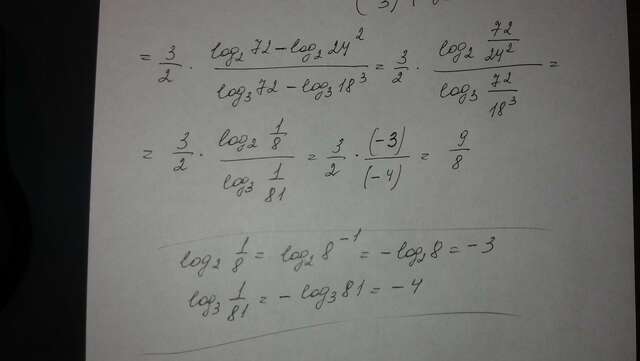 = 3/2 · (log₂72 − log₂24²)/(log₃72 − log₃18³) = 3/2 · (log₂ 72/24²)/(log₃ 72/18³) =
= 3/2 · (log₂ 1/8)/(log₃ 1/81) = 3/2 · (−3)/(−4) = 9/8
log₂ 1/8 = log₂8⁻¹ = −log₂8 = −3
log₃ 1/81 = −log₃81 = −4